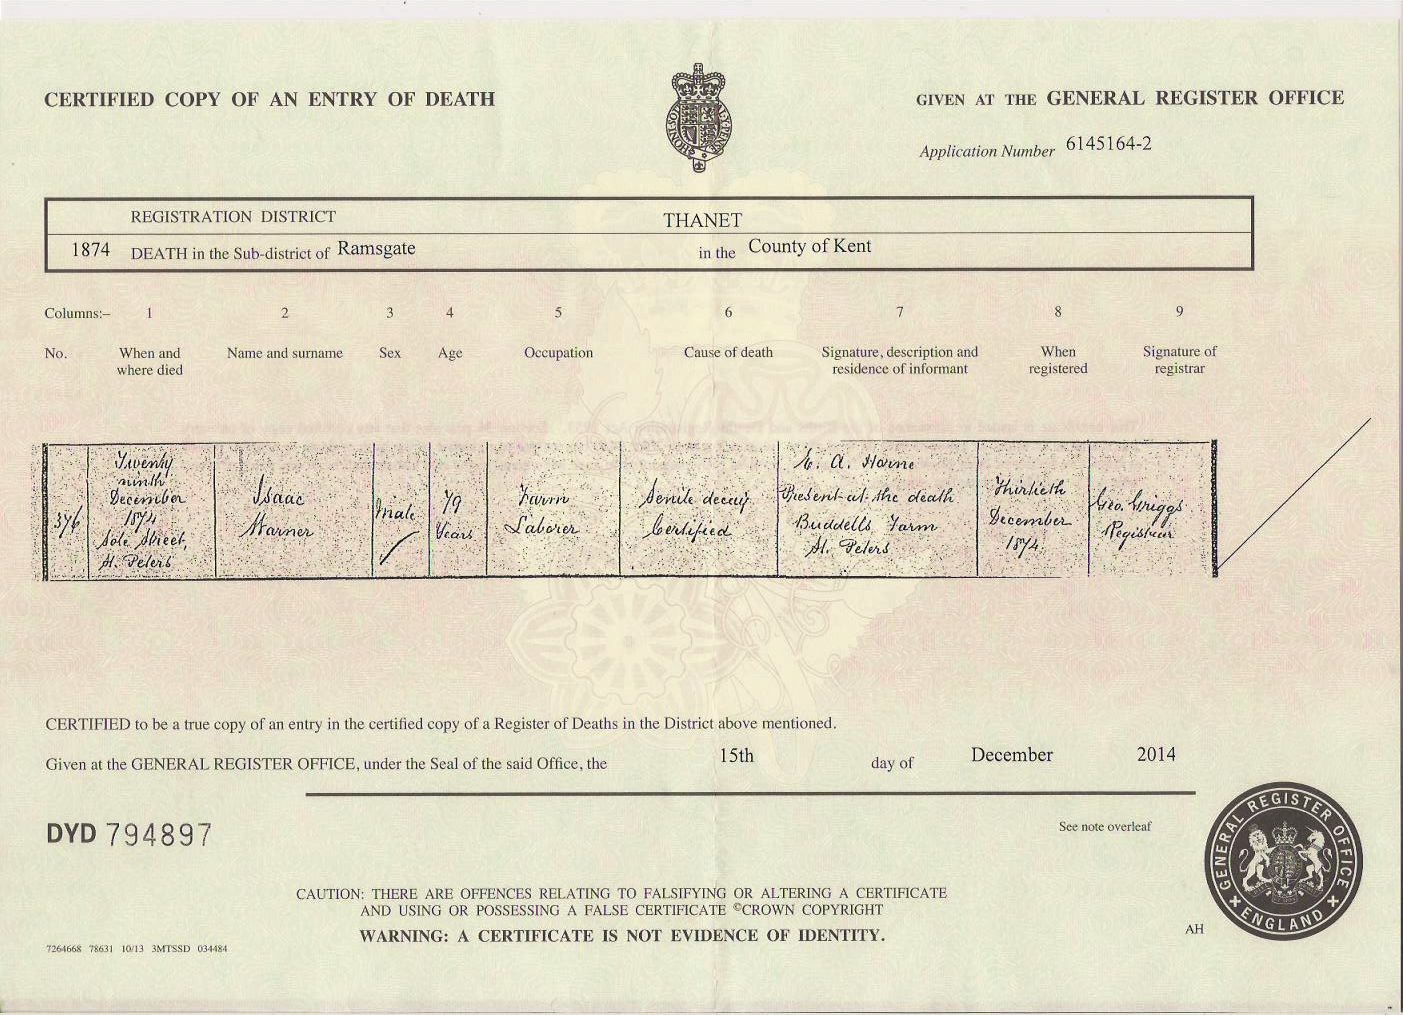 CERTIFIED COPY OF AN ENTRY OF DEATH
GIVEN AT THE GENERAL REGISTER OFFICE
Application Number 6145164-2
REGISTRATION DISTRICT THANET
1874 DEATH in the Sub-district of Ramsgate in the County of Kent
Columns:– 1 2 3 4 5 6 7 8 9
No. When and where died Name and surname Sex Age Occupation Cause of death Signature, description and residence of informant When registered Signature of registrar
376
Twenty
ninth
December
1874
Sole Street,
St. Peters
Isaac
Warner
Male
79
Years
Farm
Laborer
Senile decay
Certified
A. Horne
Present at the death
Buddells Farm
St. Peters
Thirtieth
December
1874.
Geo. Griggs
Registrar
CERTIFIED to be a true copy of an entry in the certified copy of a Register of Deaths in the District above mentioned.
Given at the GENERAL REGISTER OFFICE, under the Seal of the said Office, the 15th day of December 2014
DYD 794897
See note overleaf
GENERAL REGISTER OFFICE
ENGLAND
CAUTION: THERE ARE OFFENCES RELATING TO FALSIFYING OR ALTERING A CERTIFICATE
AND USING OR POSSESSING A FALSE CERTIFICATE ©CROWN COPYRIGHT
WARNING: A CERTIFICATE IS NOT EVIDENCE OF IDENTITY.
AH
7264668 78631 10/13 3MTSSD 034484